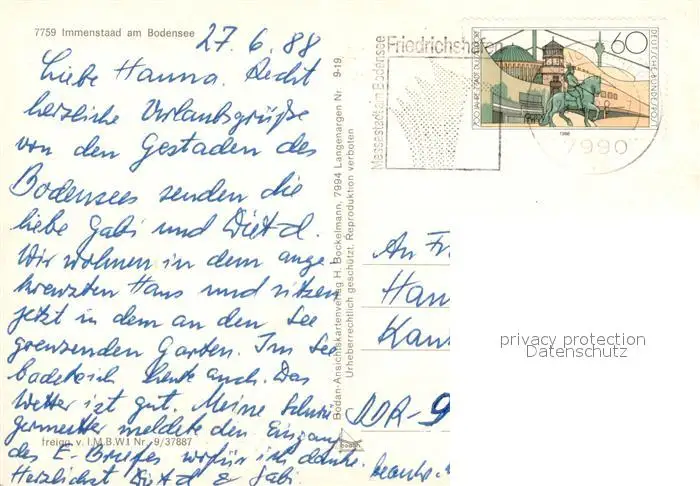 7759 Immenstaad am Bodensee
27.6.88
Liebe Hanna. Recht
herzliche Urlaubsgrüße
von den Gestaden des
Bodensees senden die
liebe Gabi und Diet d.
Wir wohnen in dem ange
kreuzten Haus und sitzen
jetzt in dem an den See
grenzenden Garten. Im See
badete ich heute auch. Das
Wetter ist gut. Meine Schwie
germutter meldete den Eingang
des E-Briefes wofür ich danke.
Herzlichst Diet d & Gabi.
freigg. v. I.M.B.W. Nr. 9/37887
Bodan-Ansichtskartenverlag H. Bockelmann, 7994 Langenargen Nr. 9-19
Urheberrechtlich geschützt. Reproduktion verboten
bodan
Messestadt am Bodensee
Friedrichshafen
700 JAHRE STADT DÜSSELDORF
60
DEUTSCHE BUNDESPOST
1988
7990
An Fr
Han
Kan
DDR-9
privacy protection
Datenschutz